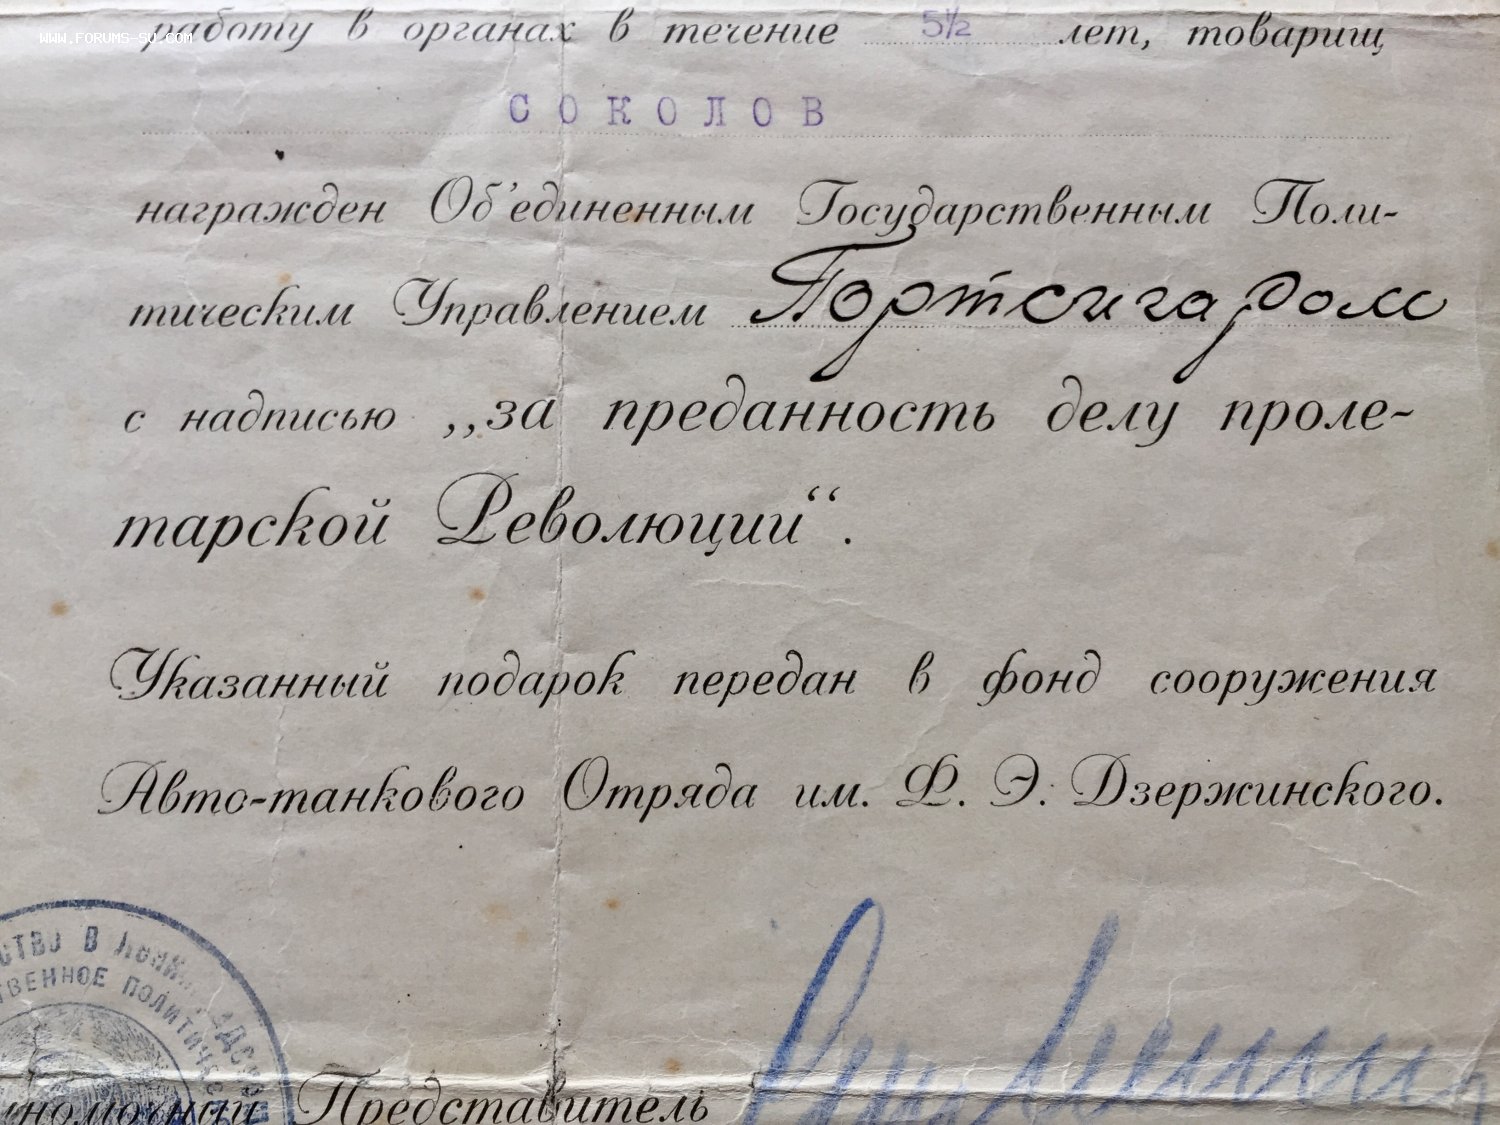 www.forums-su.com
работу в органах в течение 5½ лет, товарищ
СОКОЛОВ
награжден Об'единенным Государственным Поли-
тическим Управлением Портсигаром
с надписью „за преданность делу проле-
тарской Революции“.
Указанный подарок передан в фонд сооружения
Авто-танкового Отряда им. Ф. Э. Дзержинского.
В
ПОЛИТИЧЕС
Представитель